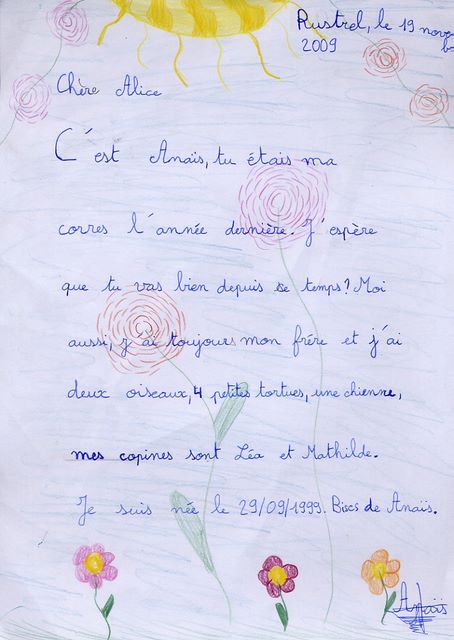 Rustrel, le 19 nove
2009
Chère Alice
C'est Anaïs, tu étais ma
corres l'année dernière. J'espère
que tu vas bien depuis ce temps? Moi
aussi, j'ai toujours mon frère et j'ai
deux oiseaux, 4 petites tortues, une chienne,
mes copines sont Léa et Mathilde.
Je suis née le 29/09/1999. Biscs de Anaïs.
Anaïs